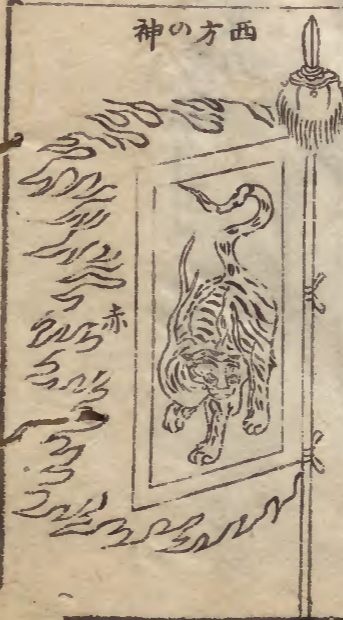 西方の神
赤